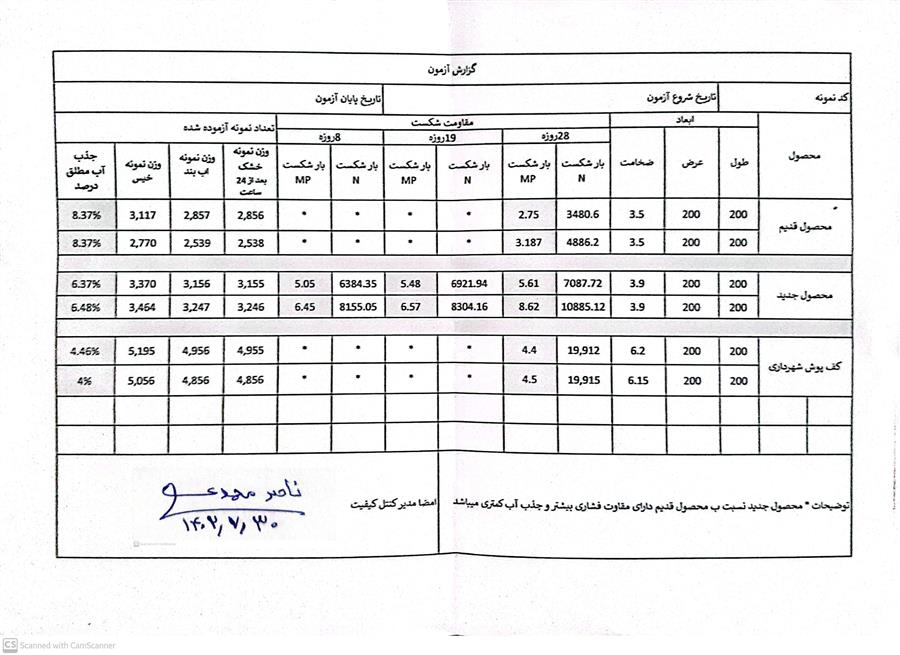 گزارش آزمون
کد نمونه تاریخ شروع آزمون تاریخ پایان آزمون
محصول ابعاد مقاومت شکست تعداد نمونه آزموده شده
28روزه 19روزه 8روزه
طول عرض ضخامت بار شکست N بار شکست MP بار شکست N بار شکست MP بار شکست N بار شکست MP وزن نمونه خشک بعد از 24 ساعت وزن نمونه اب بند وزن نمونه خیس جذب آب مطلق درصد
محصول قدیم 200 200 3.5 3480.6 2.75 * * * * 2,856 2,857 3,117 8.37%
200 200 3.5 4886.2 3.187 * * * * 2,538 2,539 2,770 8.37%
محصول جدید 200 200 3.9 7087.72 5.61 6921.94 5.48 6384.35 5.05 3,155 3,156 3,370 6.37%
200 200 3.9 10885.12 8.62 8304.16 6.57 8155.05 6.45 3,246 3,247 3,464 6.48%
کف پوش شهرداری 200 200 6.2 19,912 4.4 * * * * 4,955 4,956 5,195 4.46%
200 200 6.15 19,915 4.5 * * * * 4,856 4,856 5,056 4%
توضیحات * محصول جدید نسبت ب محصول قدیم دارای مقاوت فشاری بیشتر و جذب آب کمتری میباشد
امضا مدیر کنتل کیفیت
ناصر محمدی
۱۴۰۲,۷,۳۰
CS Scanned with CamScanner